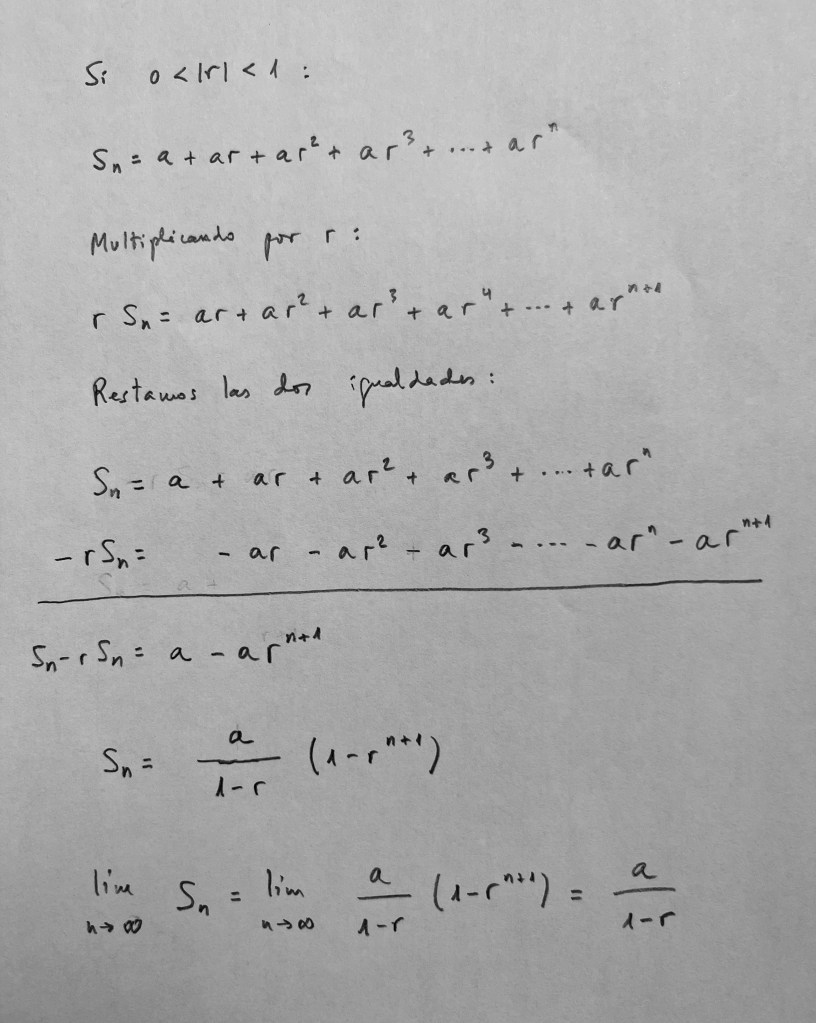 Si 0 < |r| < 1 :
Sₙ = a + ar + ar² + ar³ + ... + arⁿ
Multiplicando por r :
r Sₙ = ar + ar² + ar³ + ar⁴ + ... + arⁿ⁺¹
Restamos las dos igualdades :
Sₙ = a + ar + ar² + ar³ + .... + arⁿ
- r Sₙ = - ar - ar² - ar³ - ... - arⁿ - arⁿ⁺¹
Sₙ - r Sₙ = a - arⁿ⁺¹
Sₙ = a/(1-r) (1 - rⁿ⁺¹)
lim n→∞ Sₙ = lim n→∞ a/(1-r) (1 - rⁿ⁺¹) = a/(1-r)